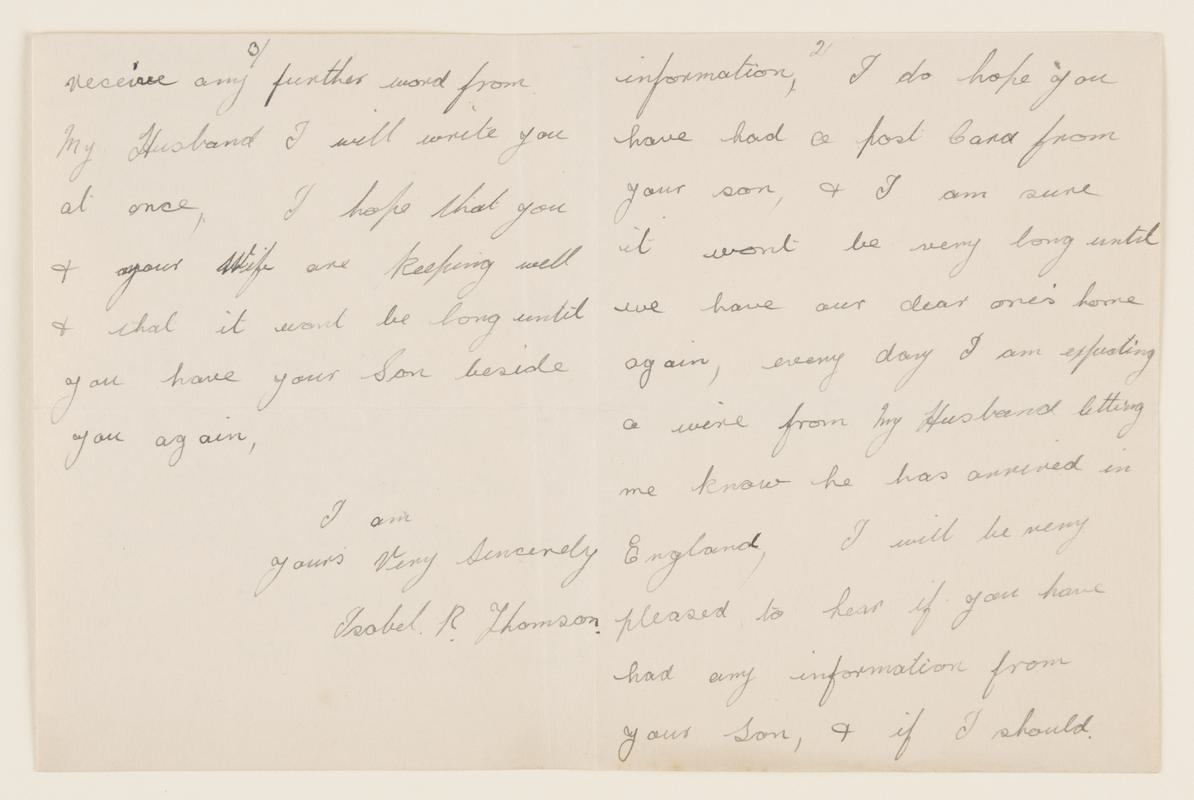 2/
information, I do hope you
have had a post Card from
your son, & I am sure
it wont be very long until
we have our dear one's home
again, every day I am expecting
a wire from My Husband letting
me know he has arrived in
England, I will be very
pleased to hear if you have
had any information from
your Son, & if I should.
3/
receive any further word from
My Husband I will write you
at once, I hope that you
& your Wife are keeping well
& that it wont be long until
you have your Son beside
you again,
I am
yours Very Sincerely
Isabel. R. Thomson.